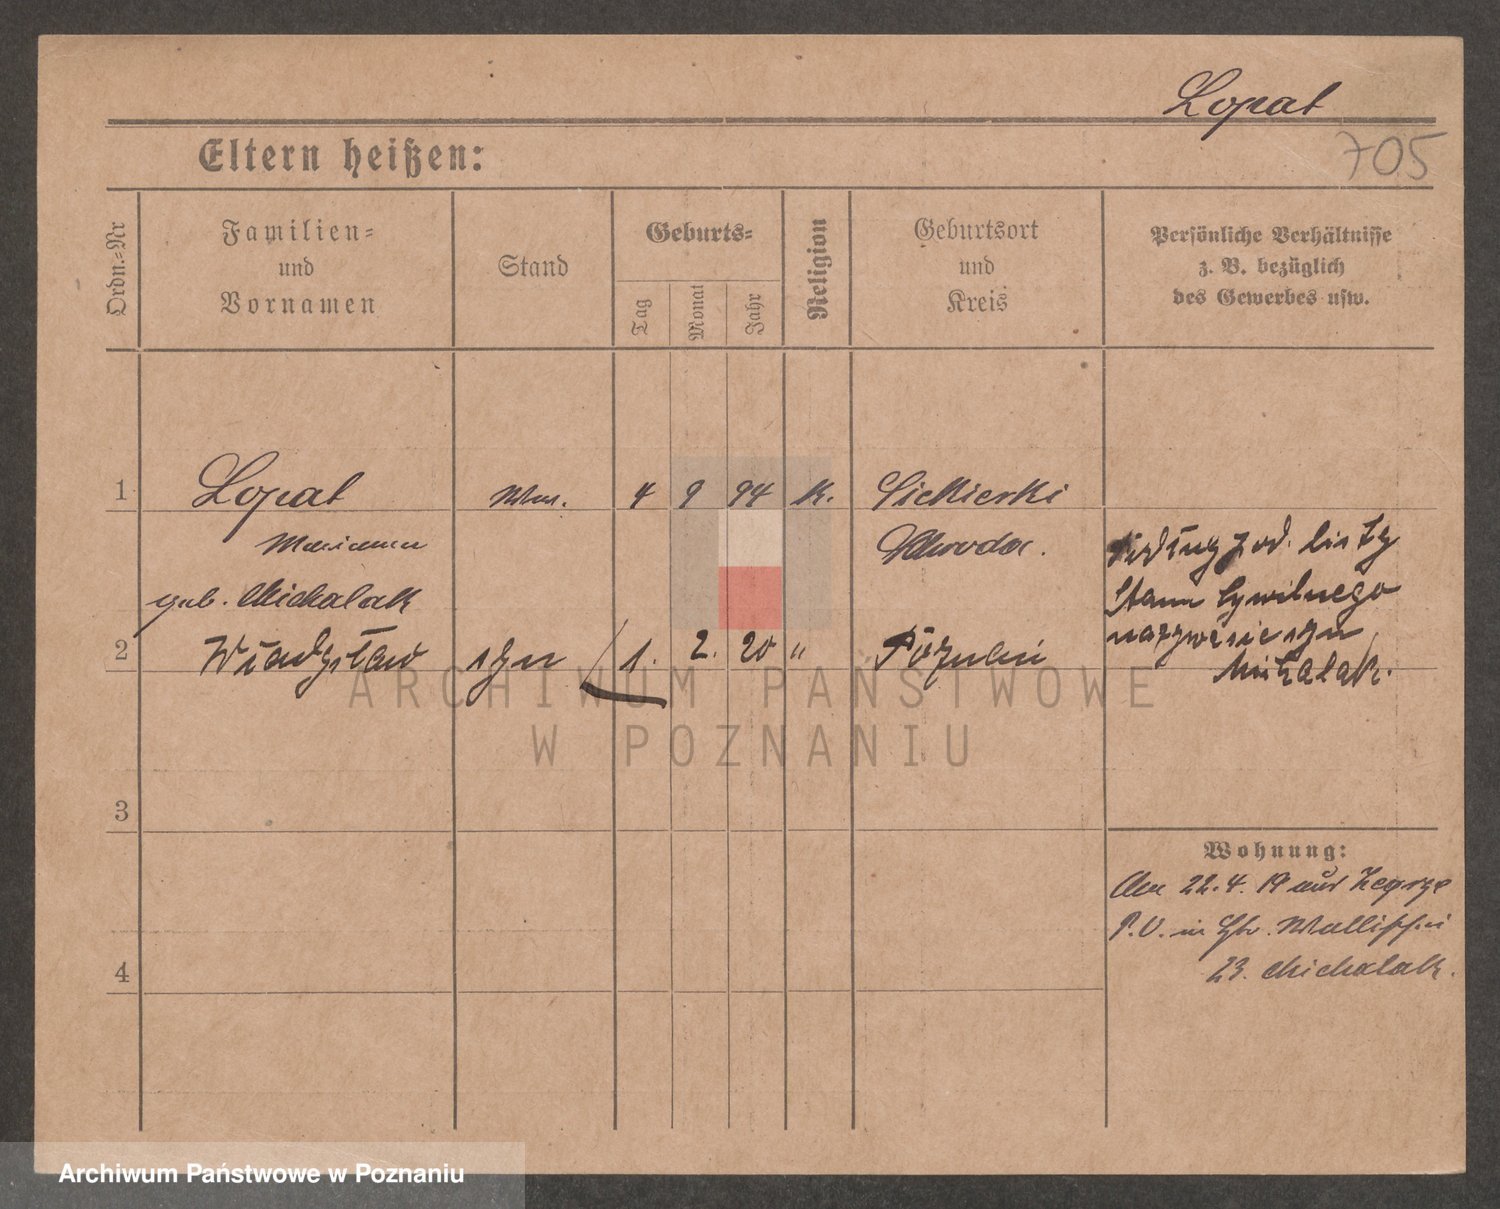 Lopat
705
Eltern heißen:
Ordn.-Nr
Familien-
und
Vornamen
Stand
Geburts-
Tag
Monat
Jahr
Religion
Geburtsort
und
Kreis
Persönliche Verhältnisse
z. B. bezüglich
des Gewerbes usw.
1
Lopat
Ww.
4
9
94
K.
Siekierki
Marianna
Schroda.
podług zod. listy
geb. Michalak
Stanu Cywilnego
2
Władysław
syn
1.
2.
20
"
Poznań
nazwisie syn
Michalak.
ARCHIWUM PAŃSTWOWE
W POZNANIU
3
Wohnung:
22.4.19 aus Zegrze
P.O. in Wallischei
4
23. Michalak.
Archiwum Państwowe w Poznaniu